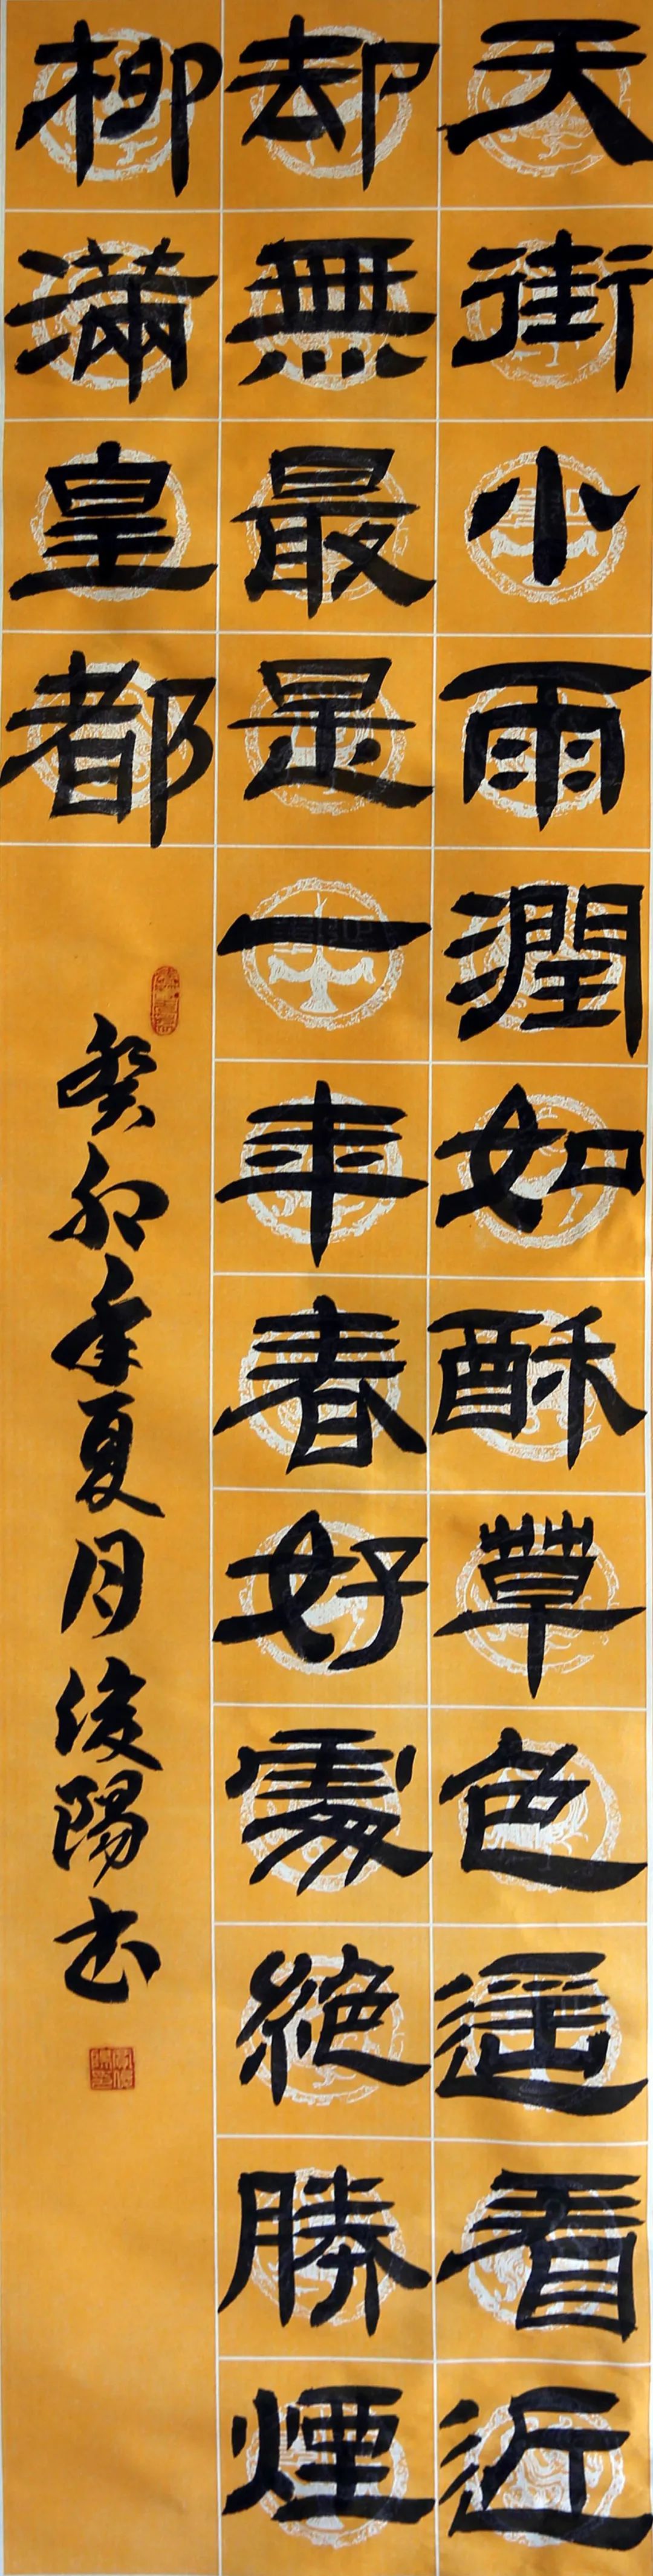 天街小雨潤如酥草色遥看近
却無最是一年春好處絕勝煙
柳滿皇都
癸卯年夏月俊陽书